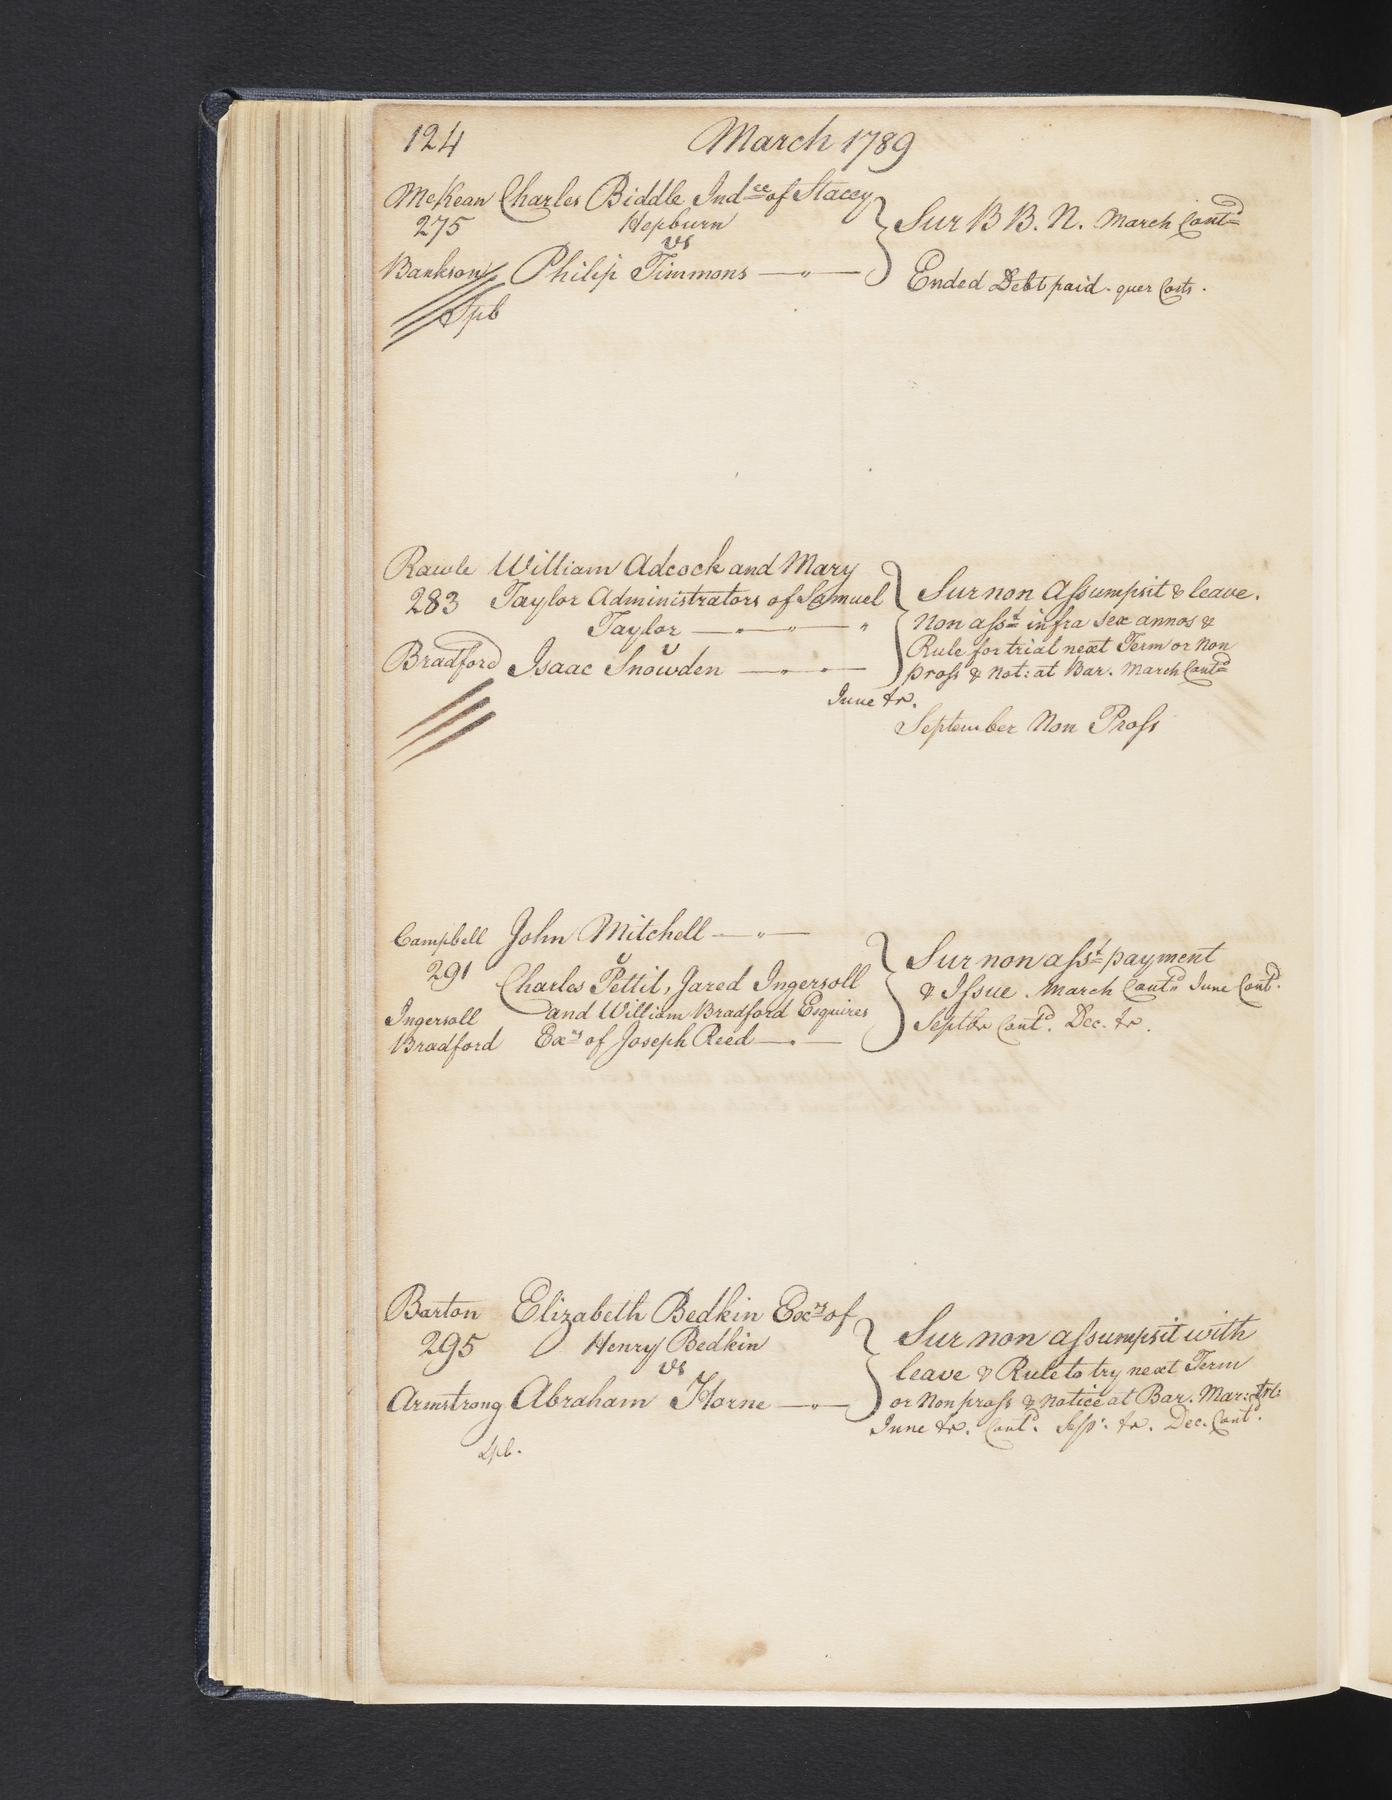 124 March 1789
McKean Charles Biddle Indce of Stacey
275 Hepburn
vs
Bankson Philip Timmons
Spb
Sur B B. N. March Contd
Ended Debt paid. quer Costs.
Rawle William Adcock and Mary
283 Taylor Administrators of Samuel
Taylor
v
Bradford Isaac Snowden
Sur non Assumpsit & leave.
Non asst infra sex annos &
Rule for trial next Term or Non
pross & Not: at Bar. March Contd
June tr.
September Non Pross
Campbell John Mitchell
v
291 Charles Pettit, Jared Ingersoll
Ingersoll and William Bradford Esquires
Bradford Exrs of Joseph Reed
Sur non asst payment
& Issue. March Contd June Contd.
Septbr Contd. Dec. tr.
Barton Elizabeth Bedkin Exrs of
295 Henry Bedkin
vs
Armstrong Abraham Horne
Spb.
Sur non assumpsit with
leave & Rule to try next Term
or Non pross & notice at Bar. Mar:
June tr. Contd. tr. Dec. Contd.